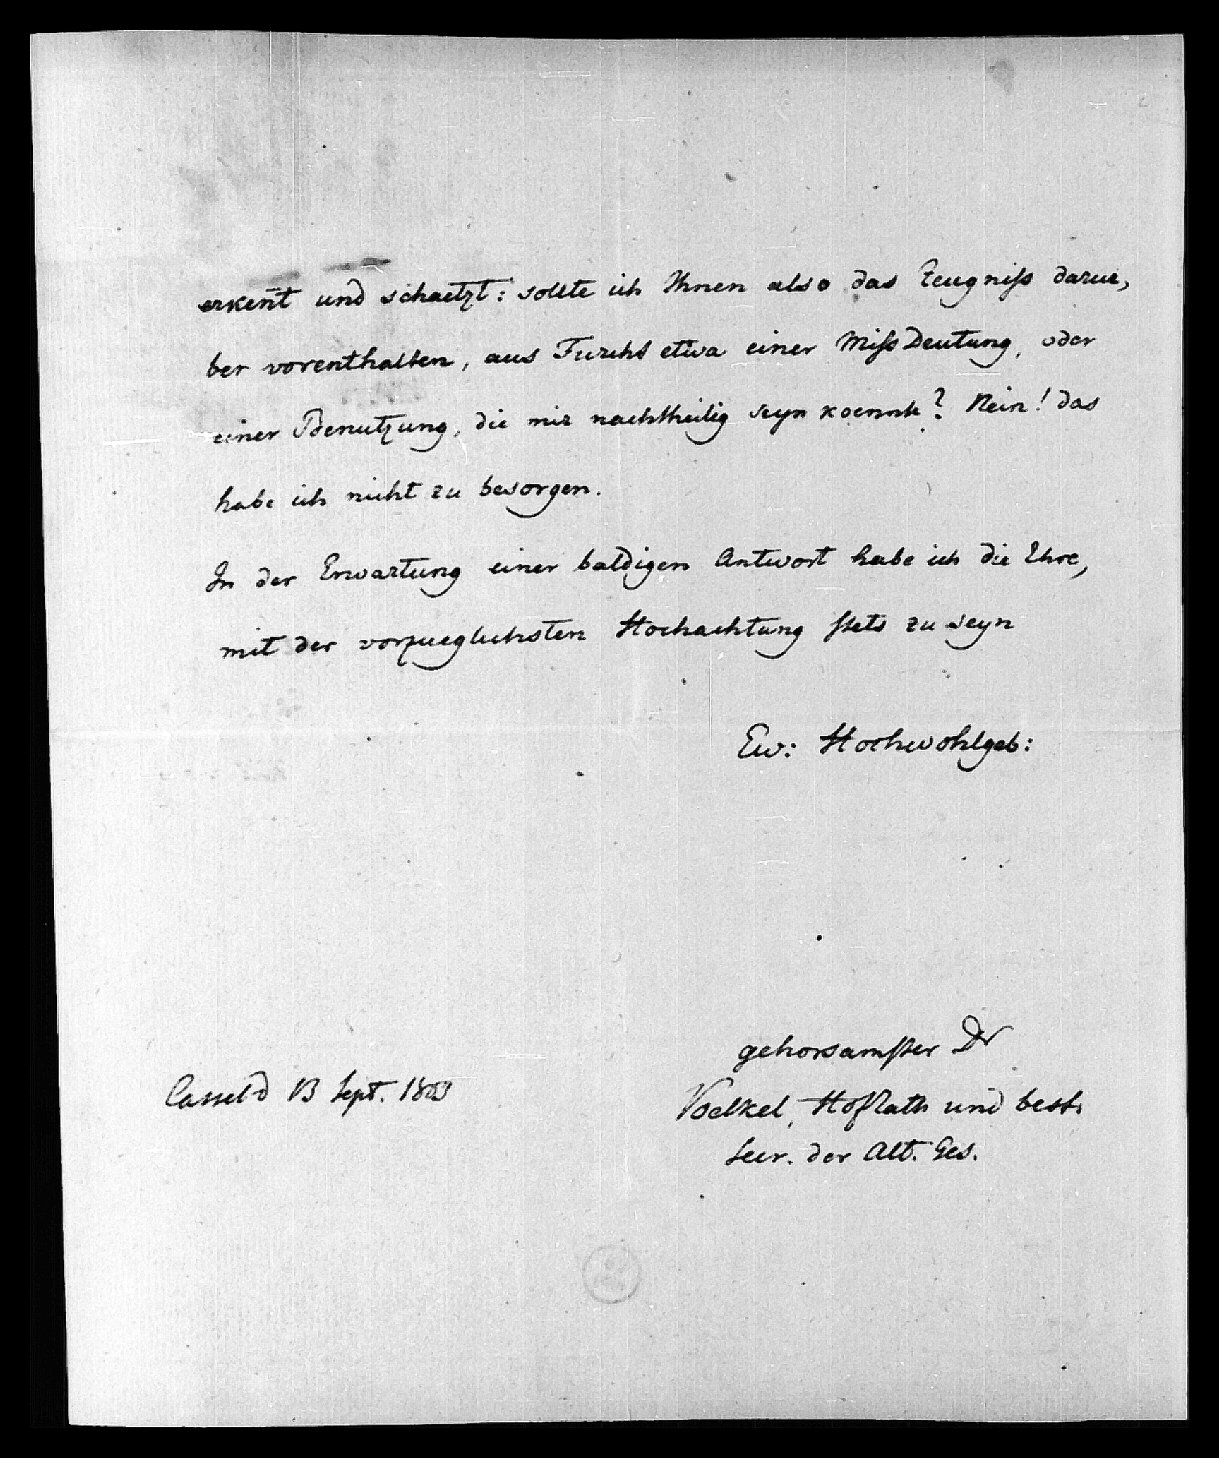 erkent̄ und schaetzt: sollte ich Ihnen also das Zeugniss darue,
ber vorenthalten, aus Furcht etwa einer MissDeutung, oder
einer Benutzung, die mir nachtheilig seyn koennte? Nein! das
habe ich nicht zu besorgen.
In der Erwartung einer baldigen Antwort habe ich die Ehre,
mit der vorzueglichsten Hochachtung stets zu seyn
Ew: Hochwohlgeb:
gehorsamster Dr
Cassel d 13 Sept. 1803
Voelkel, Hofrath und best.
Secr. der Alt. Ges.